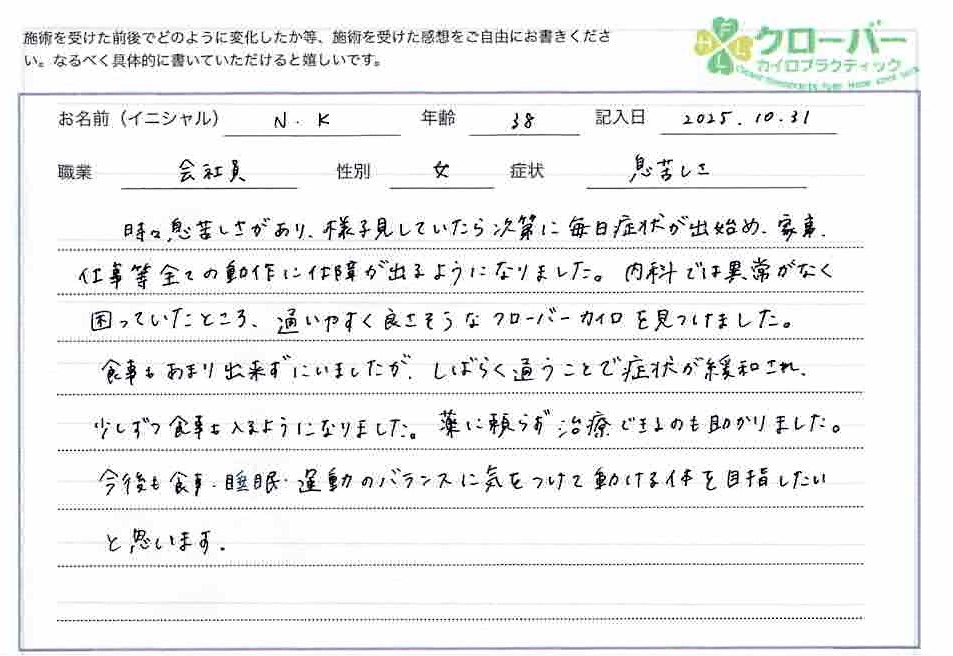 施術を受けた前後でどのように変化したか等、施術を受けた感想をご自由にお書きくださ
い。なるべく具体的に書いていただけると嬉しいです。
クローバー
カイロプラクティック
お名前（イニシャル） N.K 年齢 38 記入日 2025.10.31
職業 会社員 性別 女 症状 息苦しさ
時々息苦しさがあり、様子見していたら次第に毎日症状が出始め、家事、
仕事等全ての動作に仕障が出るようになりました。内科では異常がなく
困っていたところ、通いやすく良さそうなクローバーカイロを見つけました。
食事もあまり出来ずにいましたが、しばらく通うことで症状が緩和され、
少しずつ食事も入るようになりました。薬に頼らず治療できるのも助かりました。
今後も食事・睡眠・運動のバランスに気をつけて動ける体を目指したい
と思います。